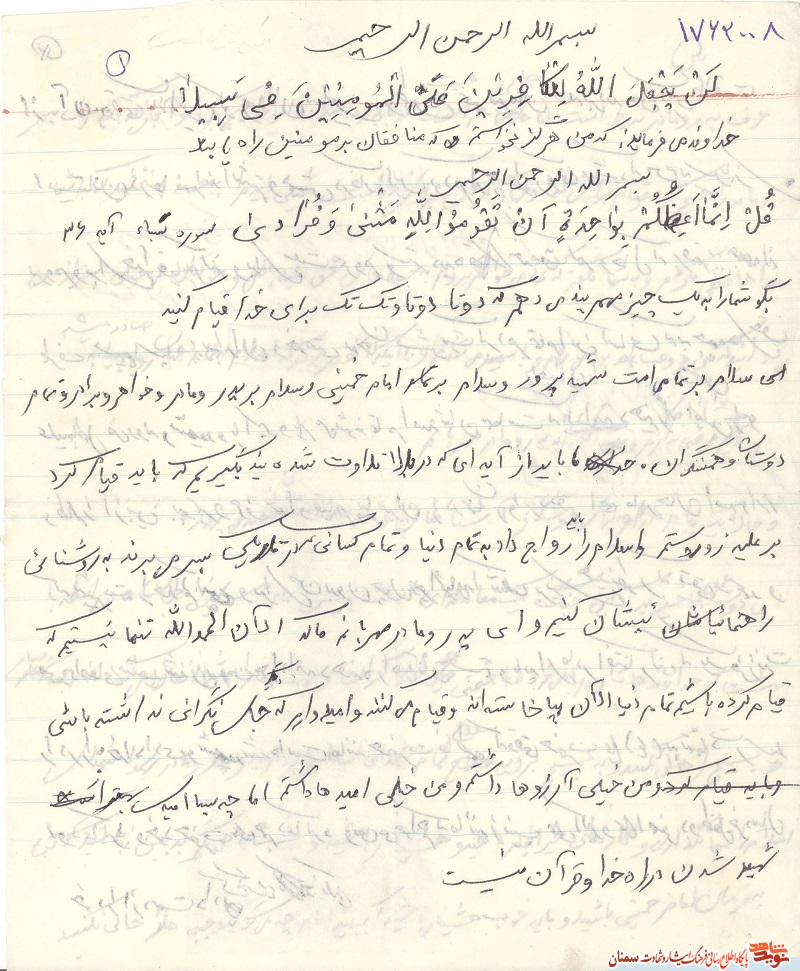 ۱۷۶۲۰۰۸
بسم الله الرحمن الرحیم
۱
لَنْ یَجْعَلَ اللهُ لِلْکافِرِینَ عَلَی الْمُومِنِینَ سَبِیلاً
خداوند می فرماید: که من هرگز نخواسته که منافقان بر مومنین راه یابند
بسم الله الرحمن الرحیم
قُلْ اِنَّمَا اَعِظُکُمْ بِواحِدَةٍ اَنْ تَقُومُوا لِلّهِ مَثْنی وَ فُرادی سوره سباء آیه ۴۶
بگو شما را به یک چیز مهم پند می دهم که دوتا دوتا و تک تک برای خدا قیام کنید
ای سلام بر تمامی امت شهید پرور و سلام بر امام خمینی و سلام بر پدر و مادر و خواهر و برادر و تمام
دوستان و همسنگران، ما باید از آیه ای که در بالا تلاوت شده پند بگیریم که باید قیام کرد
بر علیه زور و ستم و اسلام را باید رواج داد به تمام دنیا و تمام کسانی که در تاریکی بسر می برند به روشنائی
راهنمائیشان کنیم و ای پدر و مادر مهربانم ما که الآن الحمدالله تنها نیستیم که
قیام کرده باشیم تمام دنیا الآن بپا خاسته اند و قیام می کنند و امیدوارم که جای نگرانی نداشته باشی
و باید قیام کرد و من خیلی آرزوها داشتم و من خیلی امیدها داشتم اما چه بسا امیدی بهتر از
شهید شدن در راه خدا و قرآن نیست
نوید شاهد
پایگاه اطلاع رسانی فرهنگ ایثار و شهادت سمنان